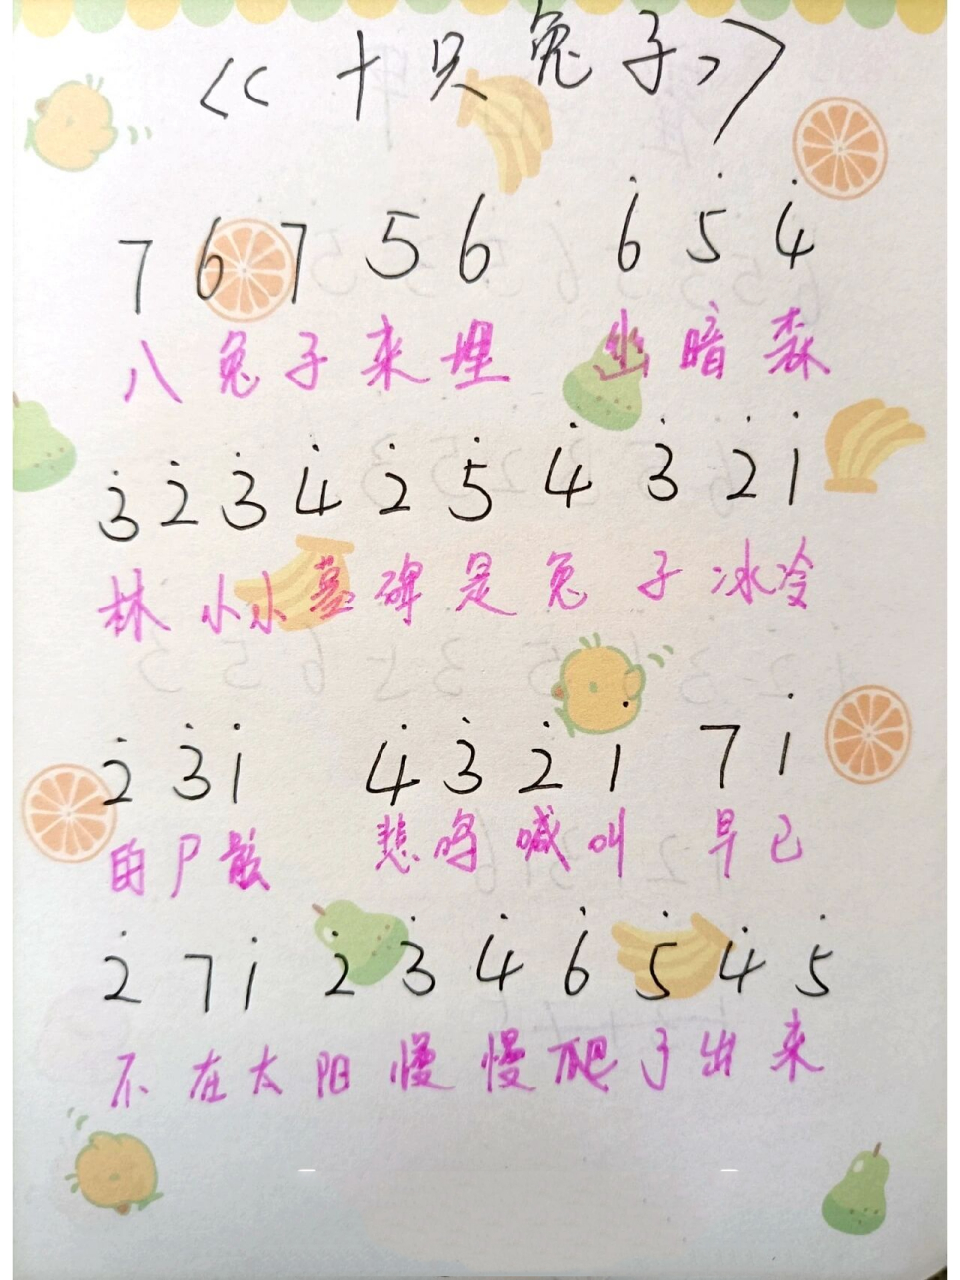 <<十只兔子>>
7 6 7 5 6 6̇ 5̇ 4̇
八兔子来埋 幽暗森
3̇ 2̇ 3̇ 4̇ 2̇ 5̇ 4̇ 3̇ 2̇ 1̇
林小小墓碑是兔子冰冷
2̇ 3̇ 1̇ 4̇ 3̇ 2̇ 1̇ 7 1̇
的尸骸 悲鸣喊叫 早已
2̇ 7 1̇ 2̇ 3̇ 4̇ 6̇ 5̇ 4̇ 5̇
不在太阳慢慢爬了出来